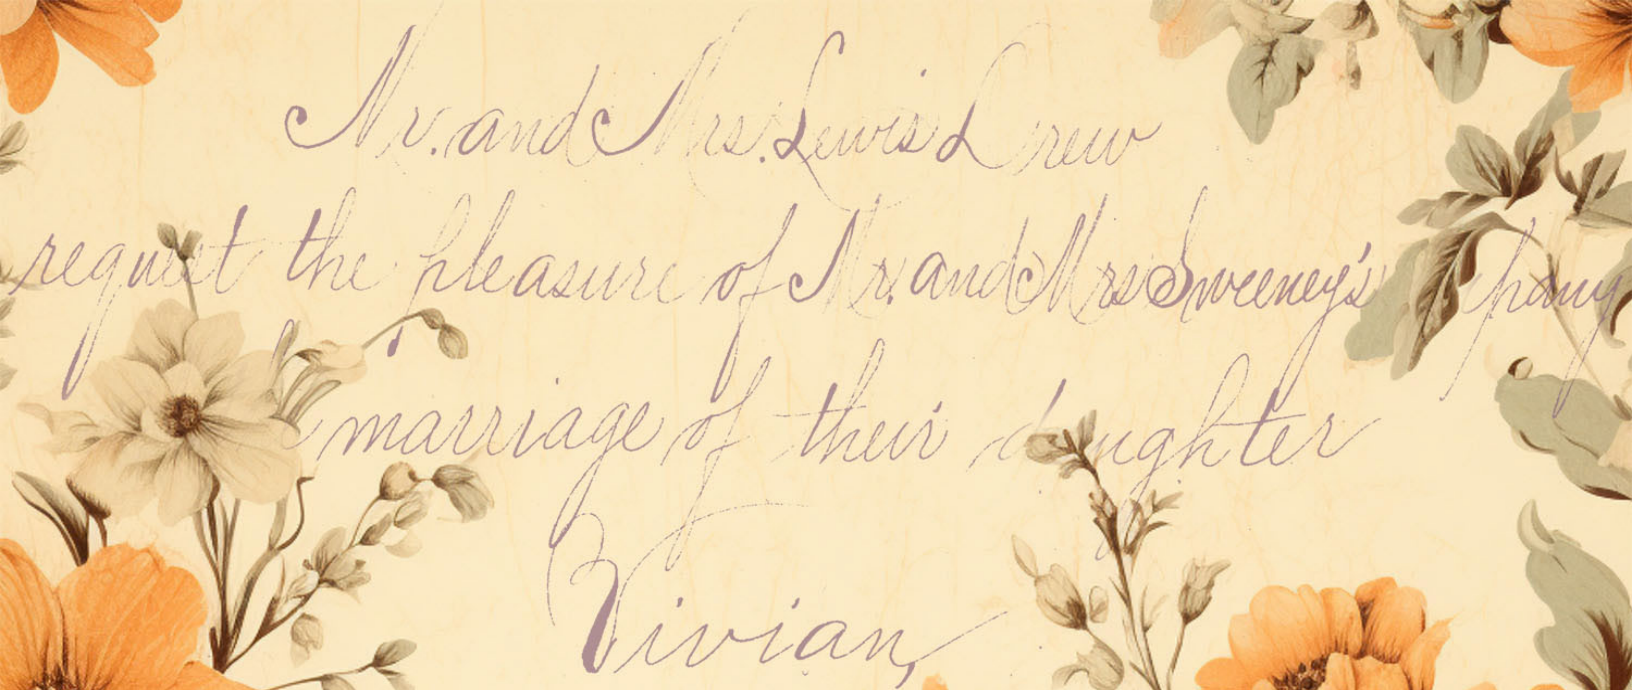 Mr. and Mrs. Lewis Drew
request the pleasure of Mr. and Mrs Sweeney's
marriage of their daughter
Vivian,